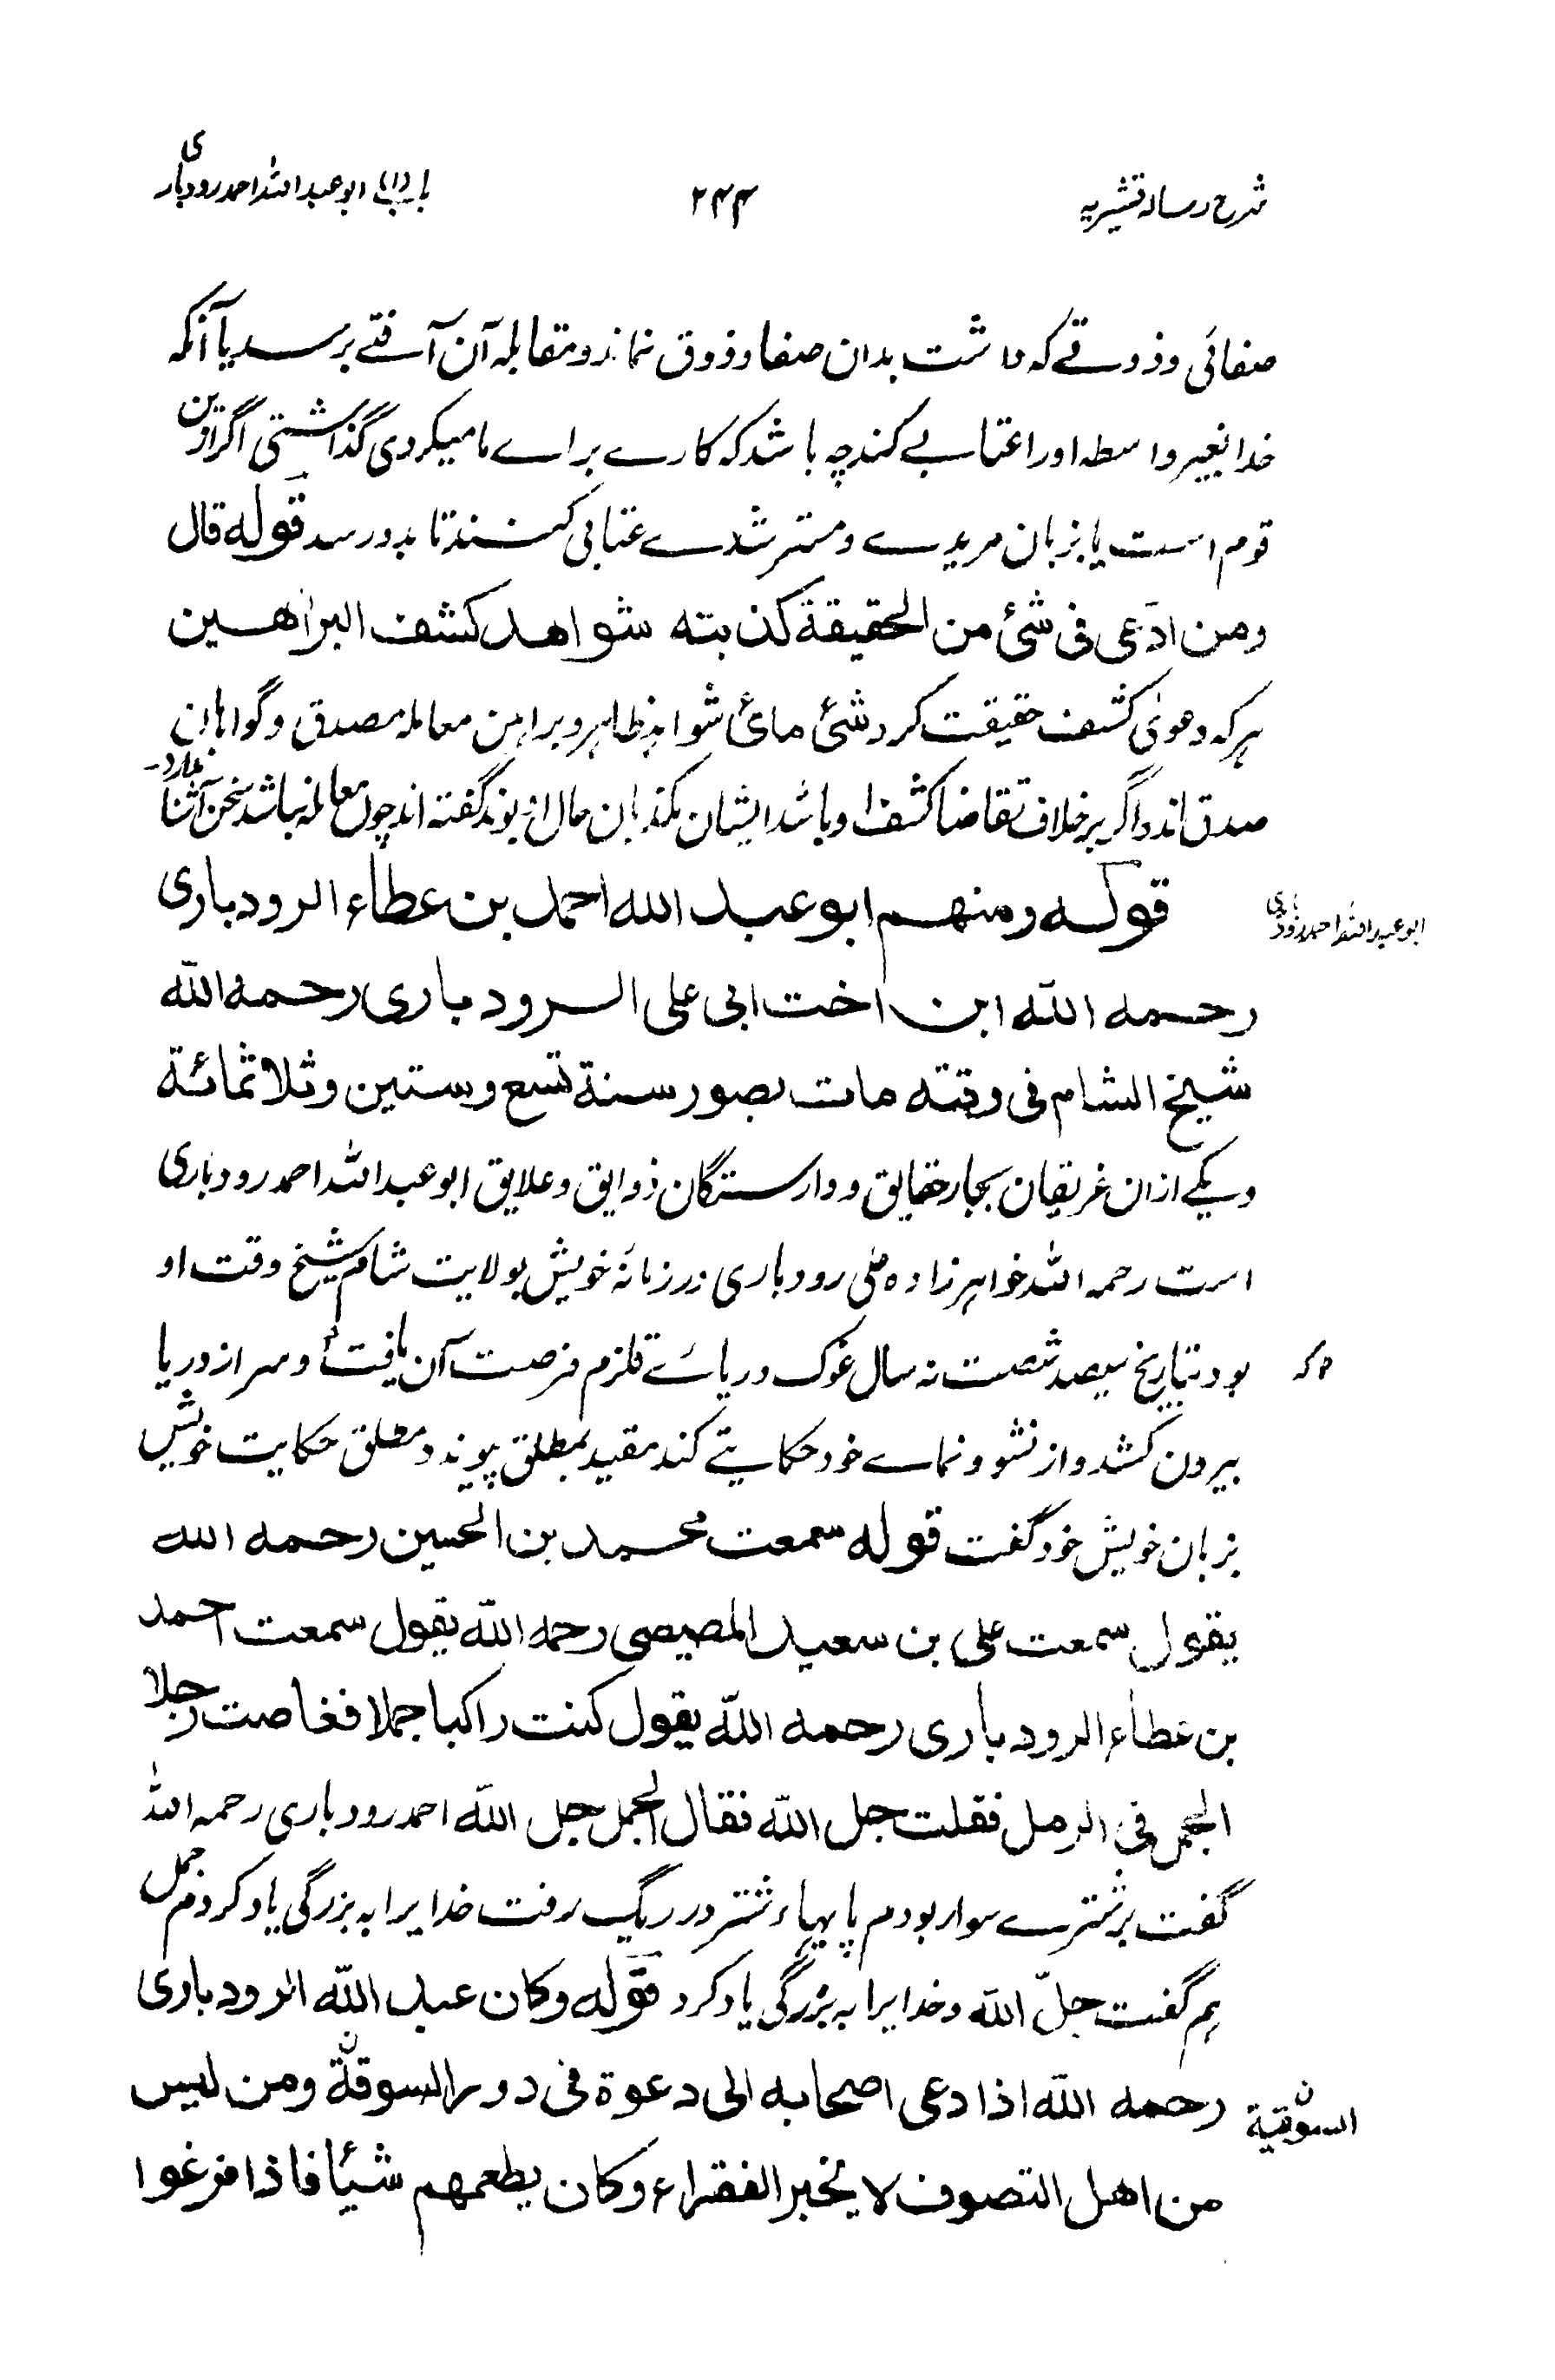 شرح رسالہ قشیریہ
۲۴۴
باب (۱) ابو عبد اللہ احمد رودباری
صفائی و ذوقے کہ داشت بدان صفا و ذوق نماند و مقابلہ آن آفتے برسد یا آنکہ
خدا بغیر واسطہ او را عتابے کند چہ باشد کہ کارے براے ما میکردی گذاشتی اگر ازین
قوم است یا بزبان مریدے و مسترشدے عتابی کنند تا بدو رسد قوله قال
ومن ادّعى فى شئ من الحقيقة كذبته شواهد كشف البراهين
ہر کہ دعویٰ کشف حقیقت کرد شئ مائ شواہد ظاہر و براہین معاملہ مصدق و گواہان
صدق اند و اگر برخلاف تقاضا کشف او باشد ایشان مکذبان حال او بوند گفتہ اند چون معاملہ نباشد سخن آشنا ندارد۔
قوله ومنهم ابو عبد الله احمد بن عطاء الرودبارى
ابو عبد اللہ احمد رودباری
رحمه الله ابن اخت ابى على الرودبارى رحمه الله
شيخ الشام فى وقته مات بصور سنة تسع وستين وثلاثمائة
و یکے ازان غریقان بحار حقایق و وارستگان ذوایق و علایق ابو عبد اللہ احمد رودباری
است رحمہ اللہ خواہر زادہ علی رودباری در زمانہ خویش بولایت شام شیخ وقت او
بود بتاریخ سیصد شصت نہ سال غوک دریاے قلزم فرصت آن یافت و سر از دریا
بیرون کشد و از نشو و نماے خود حکایتے کند مقید بمطلق پیوندد مطلق حکایت خویش
بزبان خویش خود گفت قوله سمعت محمد بن الحسين رحمه الله
يقول سمعت على بن سعيد المصيصى رحمه الله يقول سمعت احمد
بن عطاء الرودبارى رحمه الله يقول كنت راكبا جملا فغاصت رجلا
الجمل فى الرمل فقلت جل الله فقال الجمل جل الله احمد رودباری رحمہ اللہ
گفت بر شترے سوار بودم پایہاء شتر در ریگ رفت خدایرا بہ بزرگی یاد کردم جمل
ہم گفت جلّ الله و خدایرا بہ بزرگی یاد کرد قوله وكان عبد الله الرودبارى
رحمه الله اذا دعى اصحابه الى دعوة فى دور السوقة ومن ليس
السوقية
من اهل التصوف لا يخبر الفقراء وكان يطعمهم شيئا فاذا فرغوا